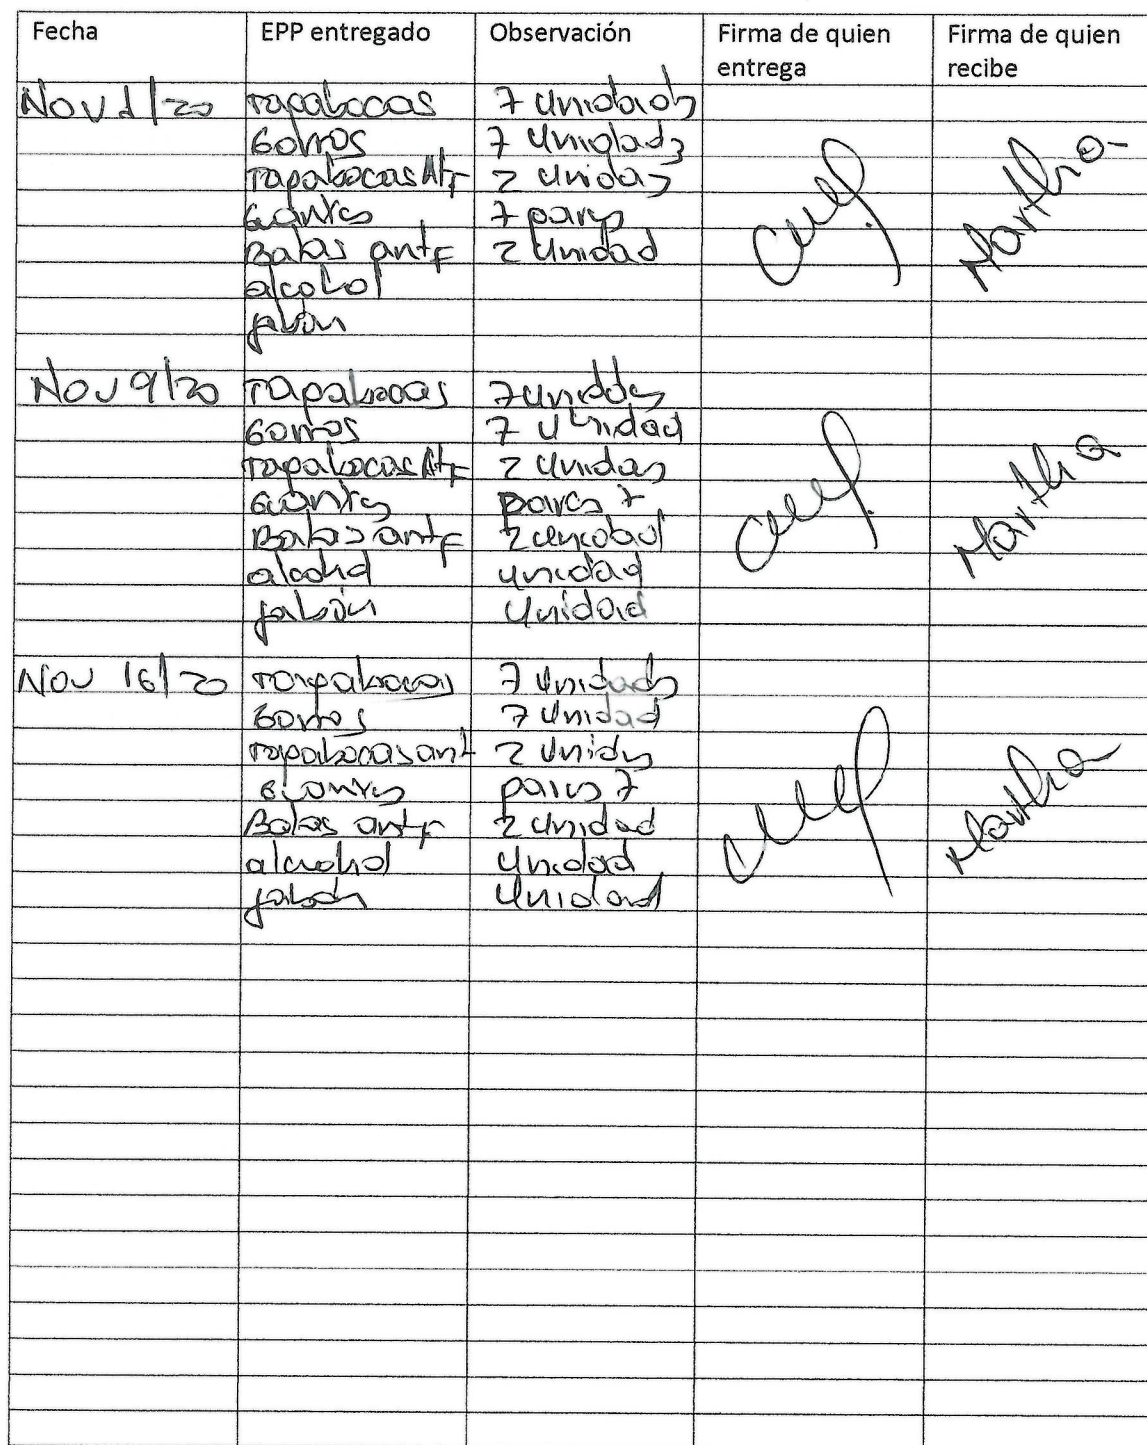 Fecha EPP entregado Observación Firma de quien entrega Firma de quien recibe
Nov 1/20 Tapabocas 7 Unidads
Gorros 7 Unidads
Tapabocas Atf 2 Unidas
Guantes 7 pares
Batas antf 2 Unidad
alcohol
jabón
Martha
Nov 9/20 Tapabocas 7 Unidds
Gorros 7 Unidad
Tapabocas Atf 2 Unidas
Guantes pares 7
Batas antf 2 Unidad
alcohol unidad
jabón Unidad
Martha
Nov 16/20 Tapabocas 7 Unidads
Gorros 7 Unidad
Tapabocas ant 2 Unids
Guantes pares 7
Batas antf 2 Unidad
alcohol Unidad
jabón Unidad
Martha